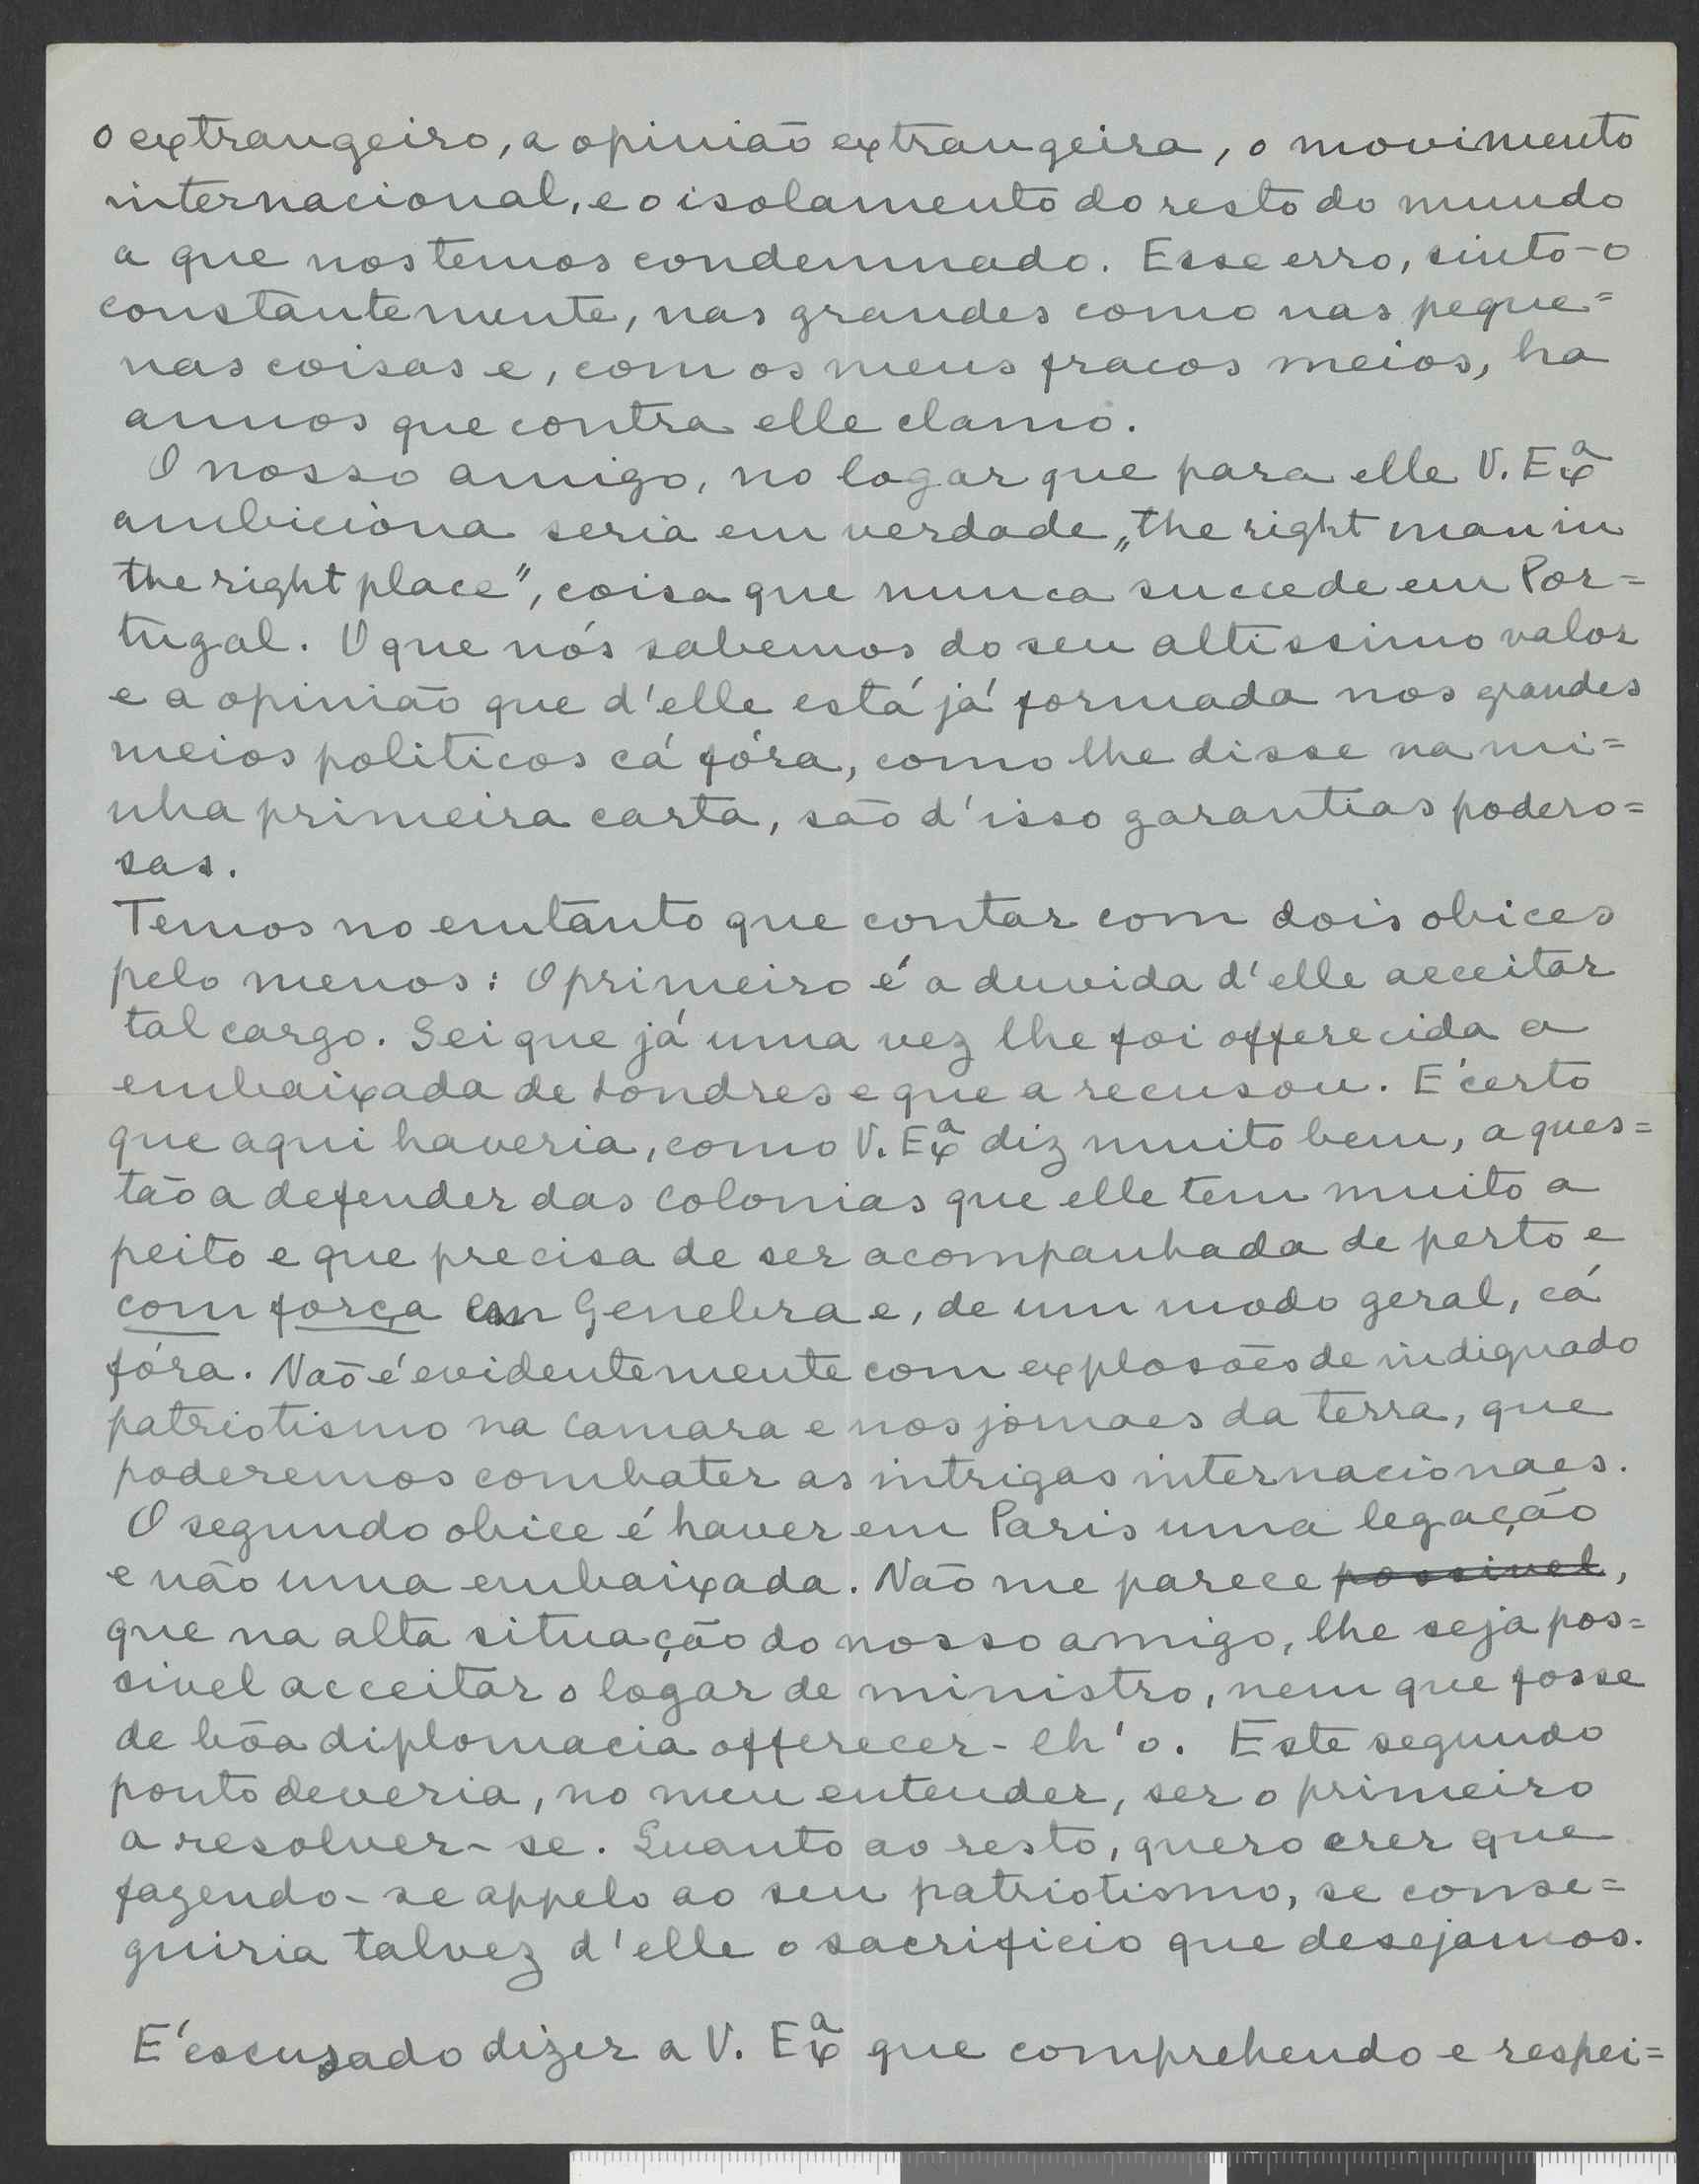 o extrangeiro, a opinião extrangeira, o movimento
internacional, e o isolamento do resto do mundo
a que nos temos condemnado. Esse erro, sinto-o
constantemente, nas grandes como nas peque=
nas coisas e, com os meus fracos meios, ha
annos que contra elle clamo.
O nosso amigo, no logar que para elle V. Exª
ambiciona seria em verdade „the right man in
the right place", coisa que nunca succede em Por=
tugal. O que nós sabemos do seu altissimo valor
e a opinião que d'elle está já formada nos grandes
meios politicos cá fóra, como lhe disse na mi=
nha primeira carta, são d'isso garantias podero=
sas.
Temos no emtanto que contar com dois obices
pelo menos: O primeiro é a duvida d'elle acceitar
tal cargo. Sei que já uma vez lhe foi offerecida a
embaixada de Londres e que a recusou. E' certo
que aqui haveria, como V. Exª diz muito bem, a ques=
tão a defender das colonias que elle tem muito a
peito e que precisa de ser acompanhada de perto e
com força em Genebra e, de um modo geral, cá
fóra. Não é evidentemente com explosões de indignado
patriotismo na camara e nos jornaes da terra, que
poderemos combater as intrigas internacionaes.
O segundo obice é haver em Paris uma legação
e não uma embaixada. Não me parece possivel,
que na alta situação do nosso amigo, lhe seja pos=
sivel acceitar o logar de ministro, nem que fosse
de bôa diplomacia offerecer-lh'o. Este segundo
ponto deveria, no meu entender, ser o primeiro
a resolver-se. Quanto ao resto, quero crer que
fazendo-se appelo ao seu patriotismo, se conse=
guiria talvez d'elle o sacrificio que desejamos.
E' escusado dizer a V. Exª que comprehendo e respei=